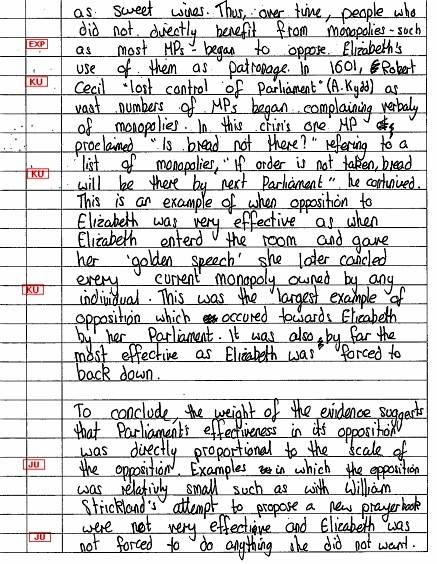 as sweet wines. Thus, over time, people who
did not directly benefit from monopolies - such
EXP as most MPs - began to oppose Elizabeth's
use of them as Patronage. In 1601, Robert
KU Cecil "lost control of Parliament" (A. Kydd) as
vast numbers of MPs began complaining verbaly
of monopolies. In this crisis one MP
proclaimed "Is bread not there?" refering to a
KU list of monopolies, "if order is not taken, bread
will be there by next Parliament" he continued.
This is an example of when opposition to
Elizabeth was very effective as when
Elizabeth enterd the room and gave
her 'golden speech' she later cancled
every current monopoly owned by any
KU individual. This was the largest example of
opposition which occured towards Elizabeth
by her Parliament. It was also, by far the
most effective as Elizabeth was forced to
back down.
To conclude, the weight of the evidence suggests
that Parliament's effectiveness in its opposition
was directly proportional to the scale of
JU the opposition. Examples in which the opposition
was relativly small such as with William
Strickland's attempt to propose a new prayerbook
were not very effective and Elizabeth was
JU not forced to do anything she did not want.